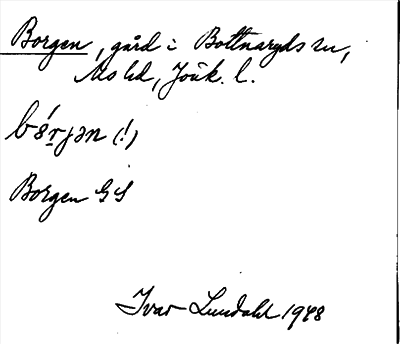 Borgen, gård i Bottnaryds sn,
Mo hd, Jönk. l.
bórjən (!)
Borgen GS
Ivar Lundahl 1948